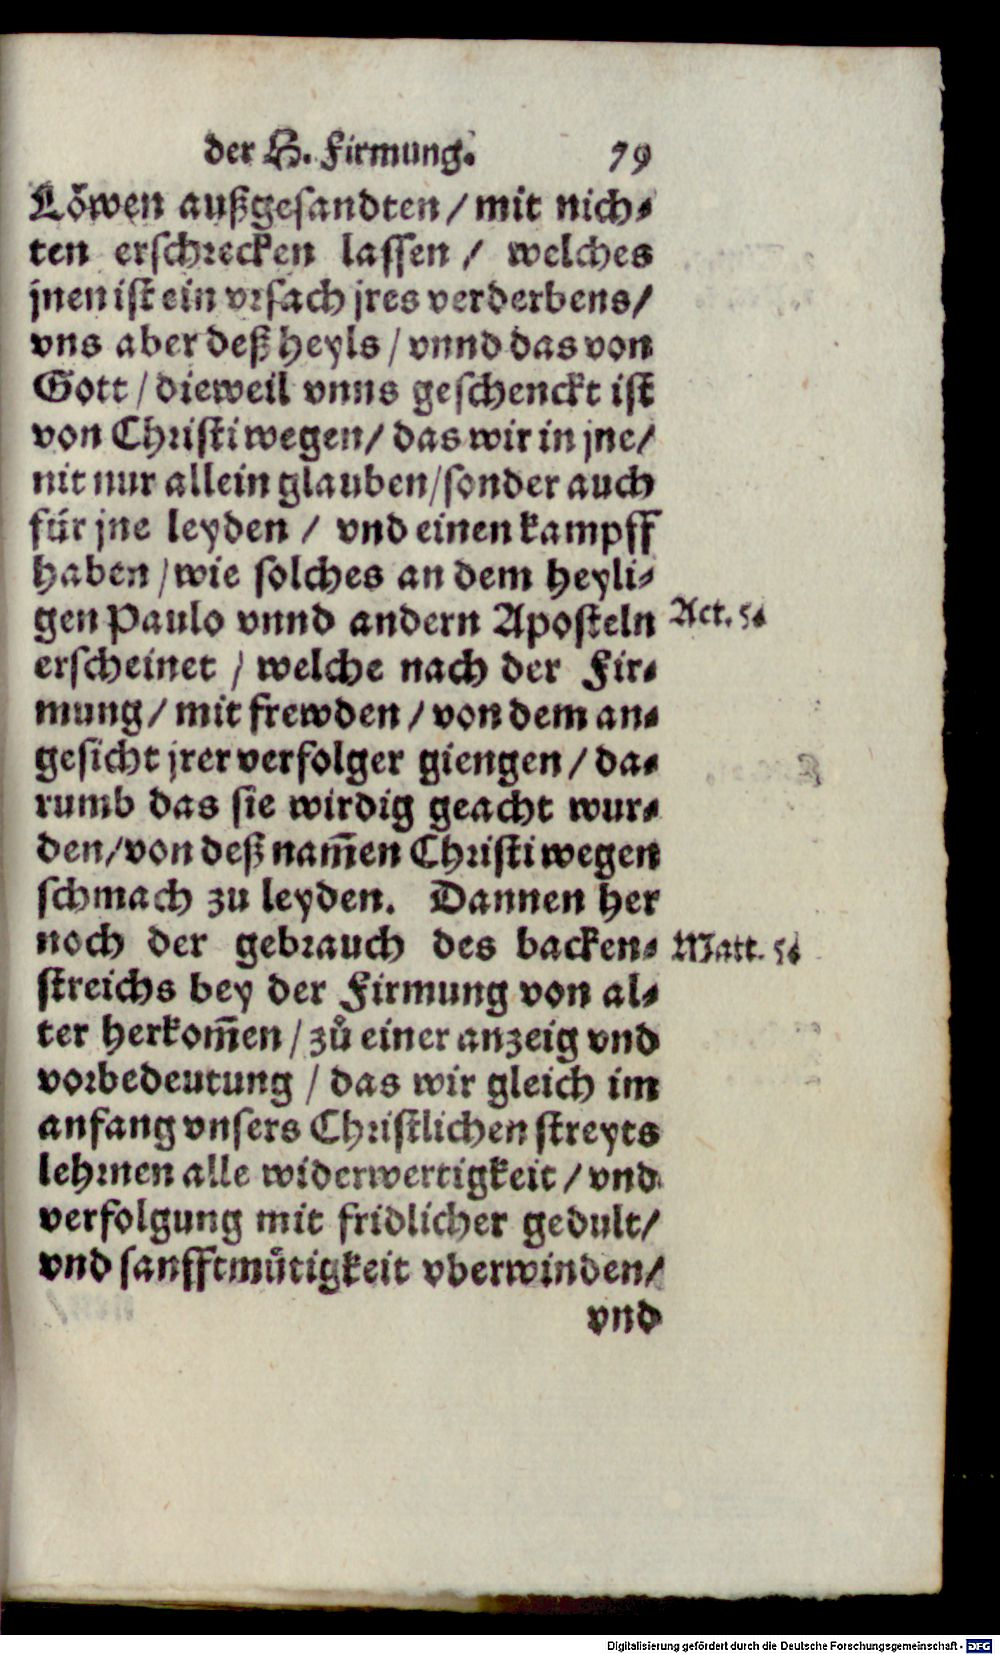 der H. Firmung. 79
Löwen außgesandten / mit nich⸗
ten erschrecken lassen / welches
jnen ist ein vrsach jres verderbens /
vns aber deß heyls / vnnd das von
Gott / dieweil vnns geschenckt ist
von Christi wegen / das wir in jne /
nit nur allein glauben / sonder auch
für jne leyden / vnd einen kampff
haben / wie solches an dem heyli⸗
gen Paulo vnnd andern Aposteln
Act. 5.
erscheinet / welche nach der Fir⸗
mung / mit frewden / von dem an⸗
gesicht jrer verfolger giengen / da⸗
rumb das sie wirdig geacht wur⸗
den / von deß nam̃en Christi wegen
schmach zu leyden. Dannen her
noch der gebrauch des backen⸗
Matt. 5.
streichs bey der Firmung von al⸗
ter herkom̃en / zů einer anzeig vnd
vorbedeutung / das wir gleich im
anfang vnsers Christlichen streyts
lehrnen alle widerwertigkeit / vnd
verfolgung mit fridlicher gedult /
vnd sanfftmůtigkeit vberwinden /
vnd
Digitalisierung gefördert durch die Deutsche Forschungsgemeinschaft - DFG